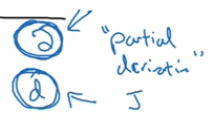 ∂ "partial
derivativ"
d J